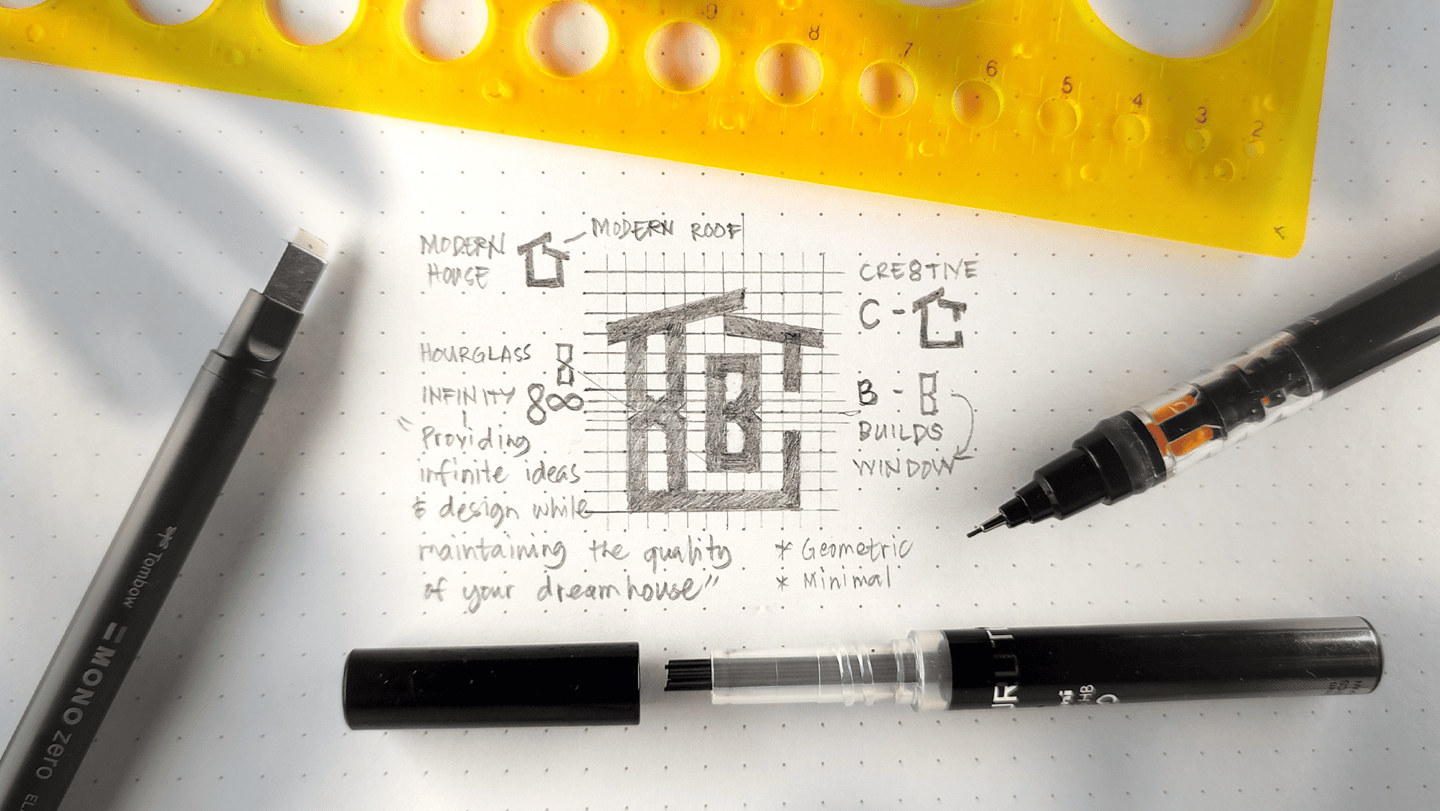 9 8 7 6 5 4 3 2
MODERN HOUSE
MODERN ROOF
HOURGLASS 8
INFINITY 8∞
"Providing
infinite ideas
& design while
maintaining the quality
of your dreamhouse"
CRE8TIVE
C -
B -
BUILDS
WINDOW
* Geometric
* Minimal
Tombow
MONO zero
HB